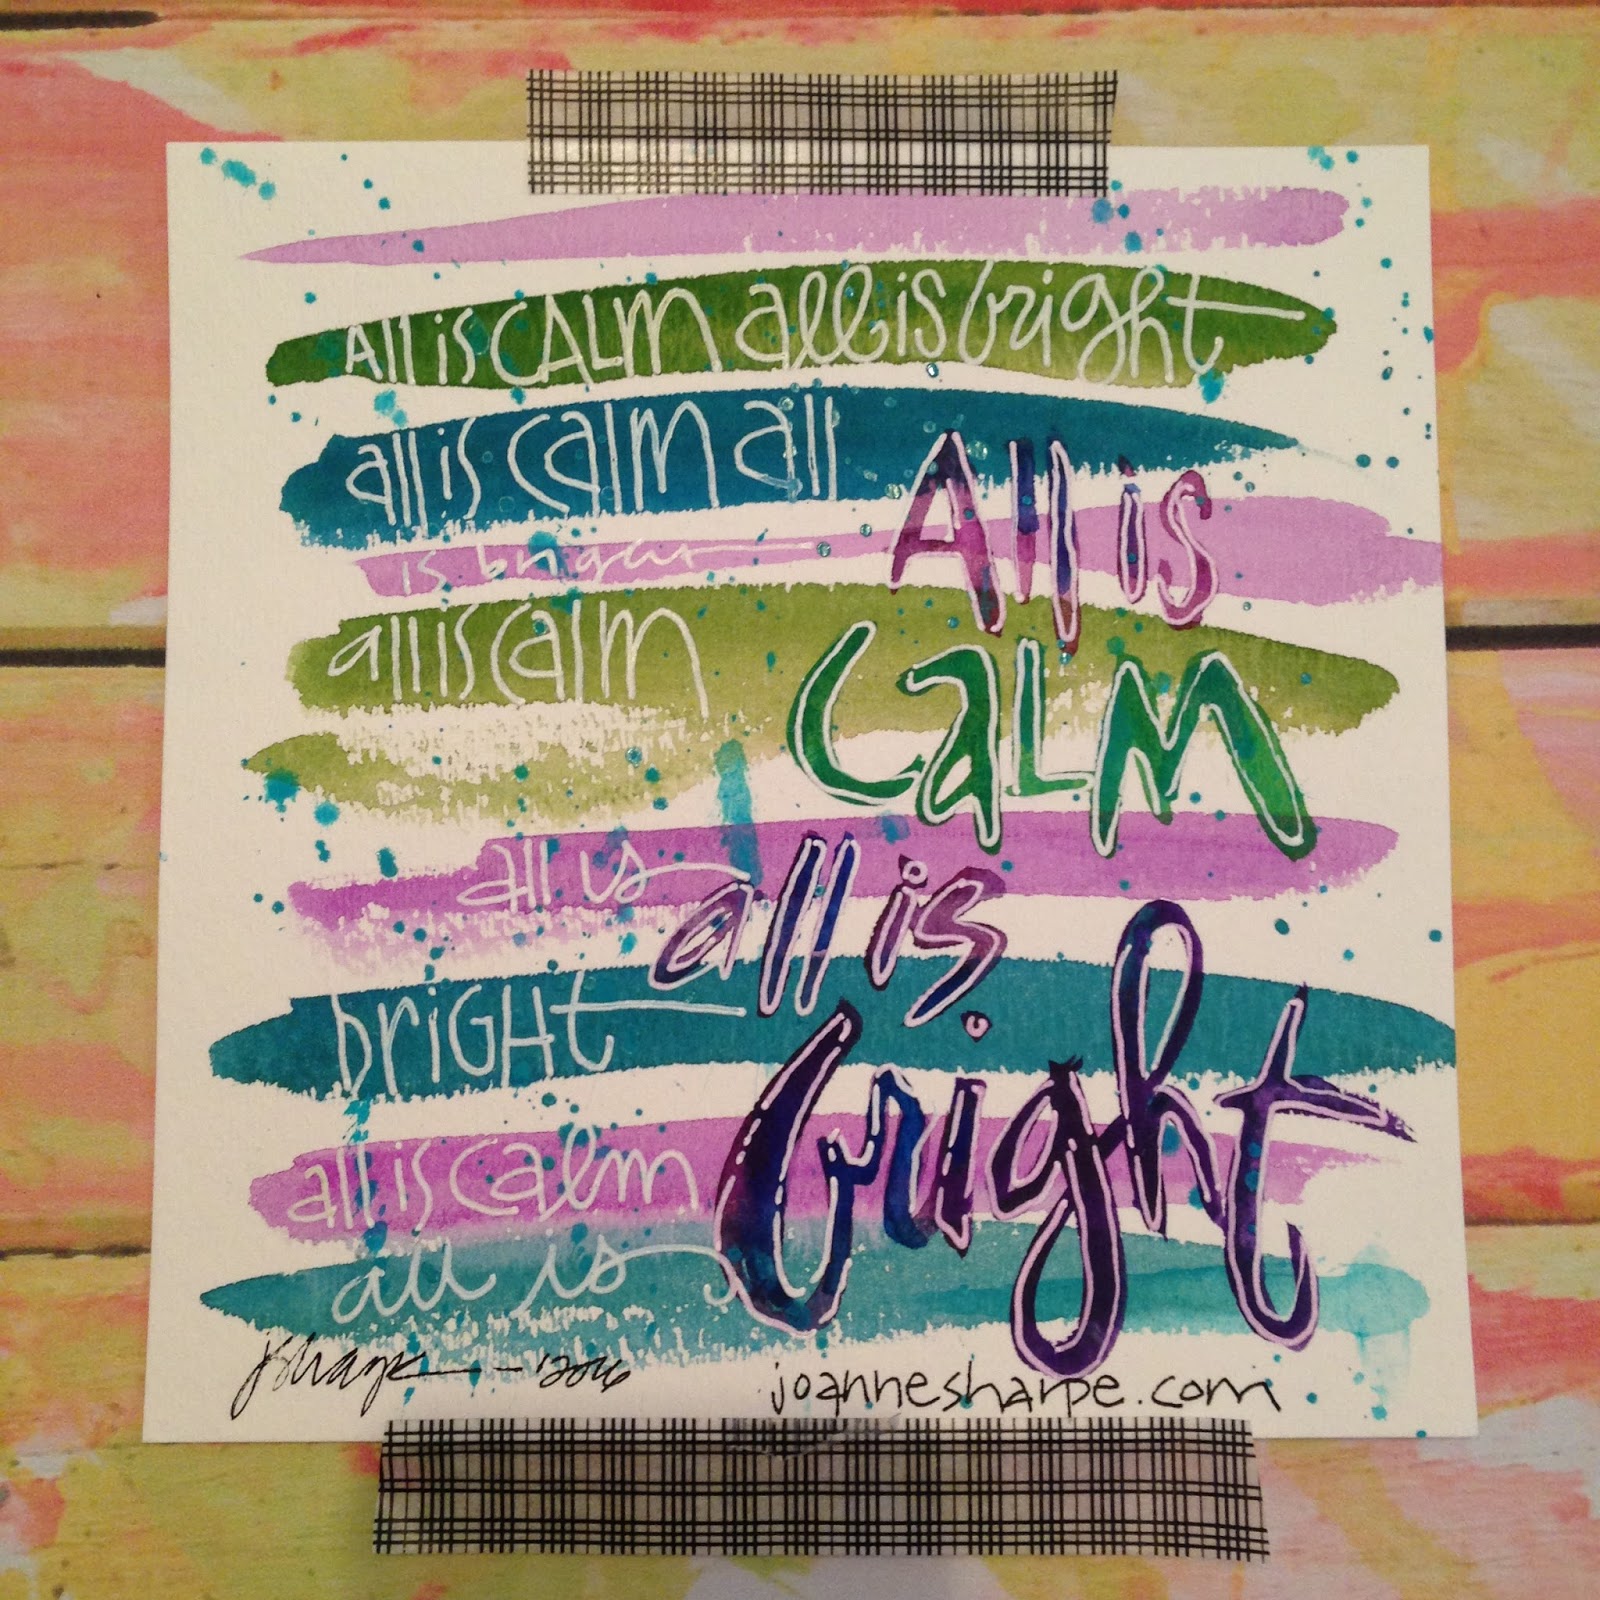 All is CALM all is bright
all is calm all
All is
is bright
all is calm
CaLM
all is
all is
briGHt
bright
all is calm
all is
JSharpe - '2016
joannesharpe.com